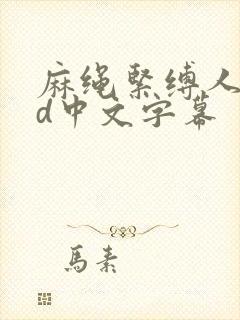 麻绳紧缚人
d中文字幕
马素